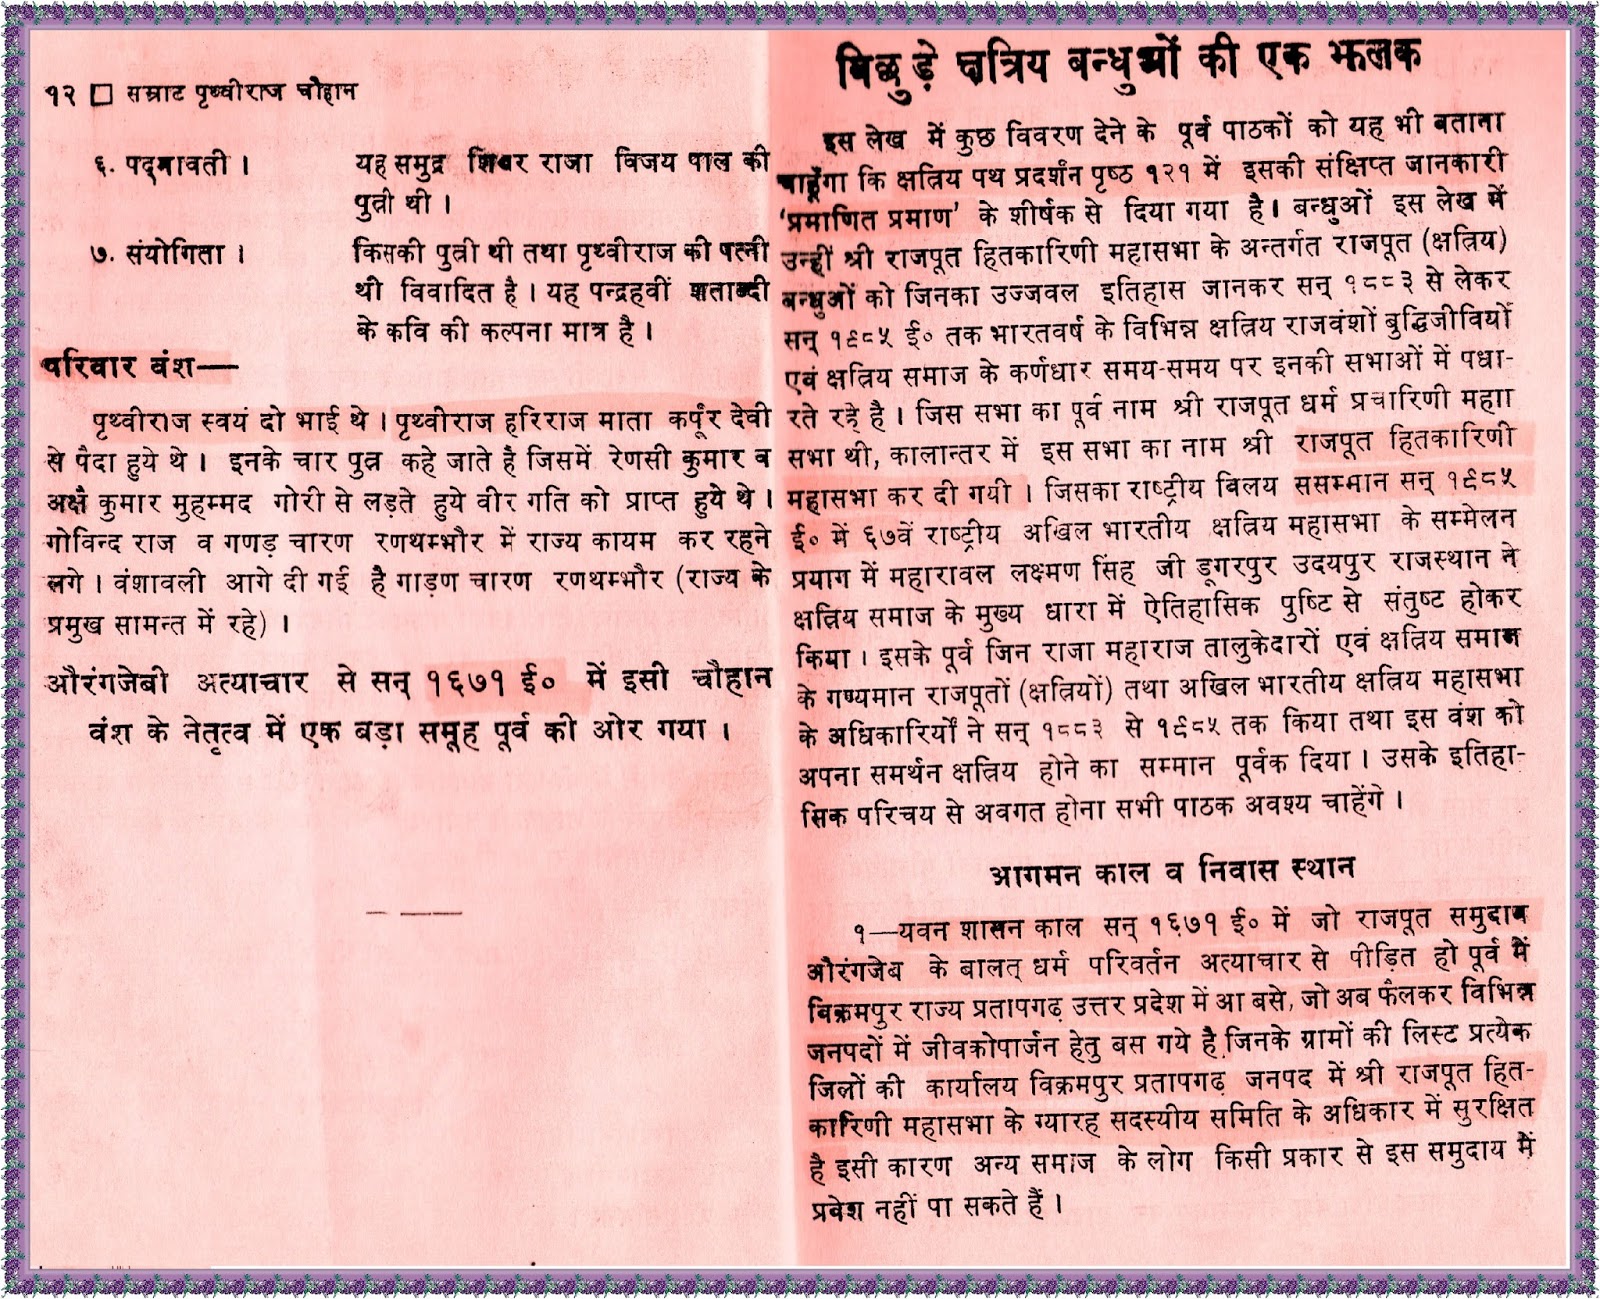 १२ □ सम्राट पृथ्वीराज चौहान
६. पद्मावती । यह समुद्र शिखर राजा विजय पाल की
पुत्री थी ।
७. संयोगिता । किसकी पुत्री थी तथा पृथ्वीराज की पत्नी
थी विवादित है । यह पन्द्रहवीं शताब्दी
के कवि की कल्पना मात्र है ।
परिवार वंश—
पृथ्वीराज स्वयं दो भाई थे । पृथ्वीराज हरिराज माता कर्पूर देवी
से पैदा हुये थे । इनके चार पुत्र कहे जाते है जिसमें रेणसी कुमार व
अक्षै कुमार मुहम्मद गोरी से लड़ते हुये वीर गति को प्राप्त हुये थे ।
गोविन्द राज व गणड़ चारण रणथम्भौर में राज्य कायम कर रहने
लगे । वंशावली आगे दी गई है गाड़ण चारण रणथम्भौर (राज्य के
प्रमुख सामन्त में रहे) ।
औरंगजेबी अत्याचार से सन् १६७१ ई० में इसी चौहान
वंश के नेतृत्व में एक बड़ा समूह पूर्व की ओर गया ।
बिछुड़े क्षत्रिय बन्धुओं की एक झलक
इस लेख में कुछ विवरण देने के पूर्व पाठकों को यह भी बताना
चाहूँगा कि क्षत्रिय पथ प्रदर्शन पृष्ठ १२१ में इसकी संक्षिप्त जानकारी
'प्रमाणित प्रमाण' के शीर्षक से दिया गया है। बन्धुओं इस लेख में
उन्हीं श्री राजपूत हितकारिणी महासभा के अन्तर्गत राजपूत (क्षत्रिय)
बन्धुओं को जिनका उज्जवल इतिहास जानकर सन् १८८३ से लेकर
सन् १९८५ ई० तक भारतवर्ष के विभिन्न क्षत्रिय राजवंशों बुद्धिजीवियों
एवं क्षत्रिय समाज के कर्णधार समय-समय पर इनकी सभाओं में पधा-
रते रहे है । जिस सभा का पूर्व नाम श्री राजपूत धर्म प्रचारिणी महाा
सभा थी, कालान्तर में इस सभा का नाम श्री राजपूत हितकारिणी
महासभा कर दी गयी । जिसका राष्ट्रीय विलय ससम्मान सन् १९८५
ई० में ६७वें राष्ट्रीय अखिल भारतीय क्षत्रिय महासभा के सम्मेलन
प्रयाग में महारावल लक्ष्मण सिंह जी डूगरपुर उदयपुर राजस्थान ने
क्षत्रिय समाज के मुख्य धारा में ऐतिहासिक पुष्टि से संतुष्ट होकर
किया । इसके पूर्व जिन राजा महाराज तालुकेदारों एवं क्षत्रिय समाज
के गण्यमान राजपूतों (क्षत्रियों) तथा अखिल भारतीय क्षत्रिय महासभा
के अधिकारियों ने सन् १८८३ से १९८५ तक किया तथा इस वंश को
अपना समर्थन क्षत्रिय होने का सम्मान पूर्वक दिया । उसके इतिहा-
सिक परिचय से अवगत होना सभी पाठक अवश्य चाहेंगे ।
आगमन काल व निवास स्थान
१—यवन शासन काल सन् १६७१ ई० में जो राजपूत समुदाय
औरंगजेब के बालत् धर्म परिवर्तन अत्याचार से पीड़ित हो पूर्व में
विक्रमपुर राज्य प्रतापगढ़ उत्तर प्रदेश में आ बसे, जो अब फैलकर विभिन्न
जनपदों में जीवकोपार्जन हेतु बस गये है जिनके ग्रामों की लिस्ट प्रत्येक
जिलों की कार्यालय विक्रमपुर प्रतापगढ़ जनपद में श्री राजपूत हित-
कारिणी महासभा के ग्यारह सदस्यीय समिति के अधिकार में सुरक्षित
है इसी कारण अन्य समाज के लोग किसी प्रकार से इस समुदाय में
प्रवेश नहीं पा सकते हैं ।